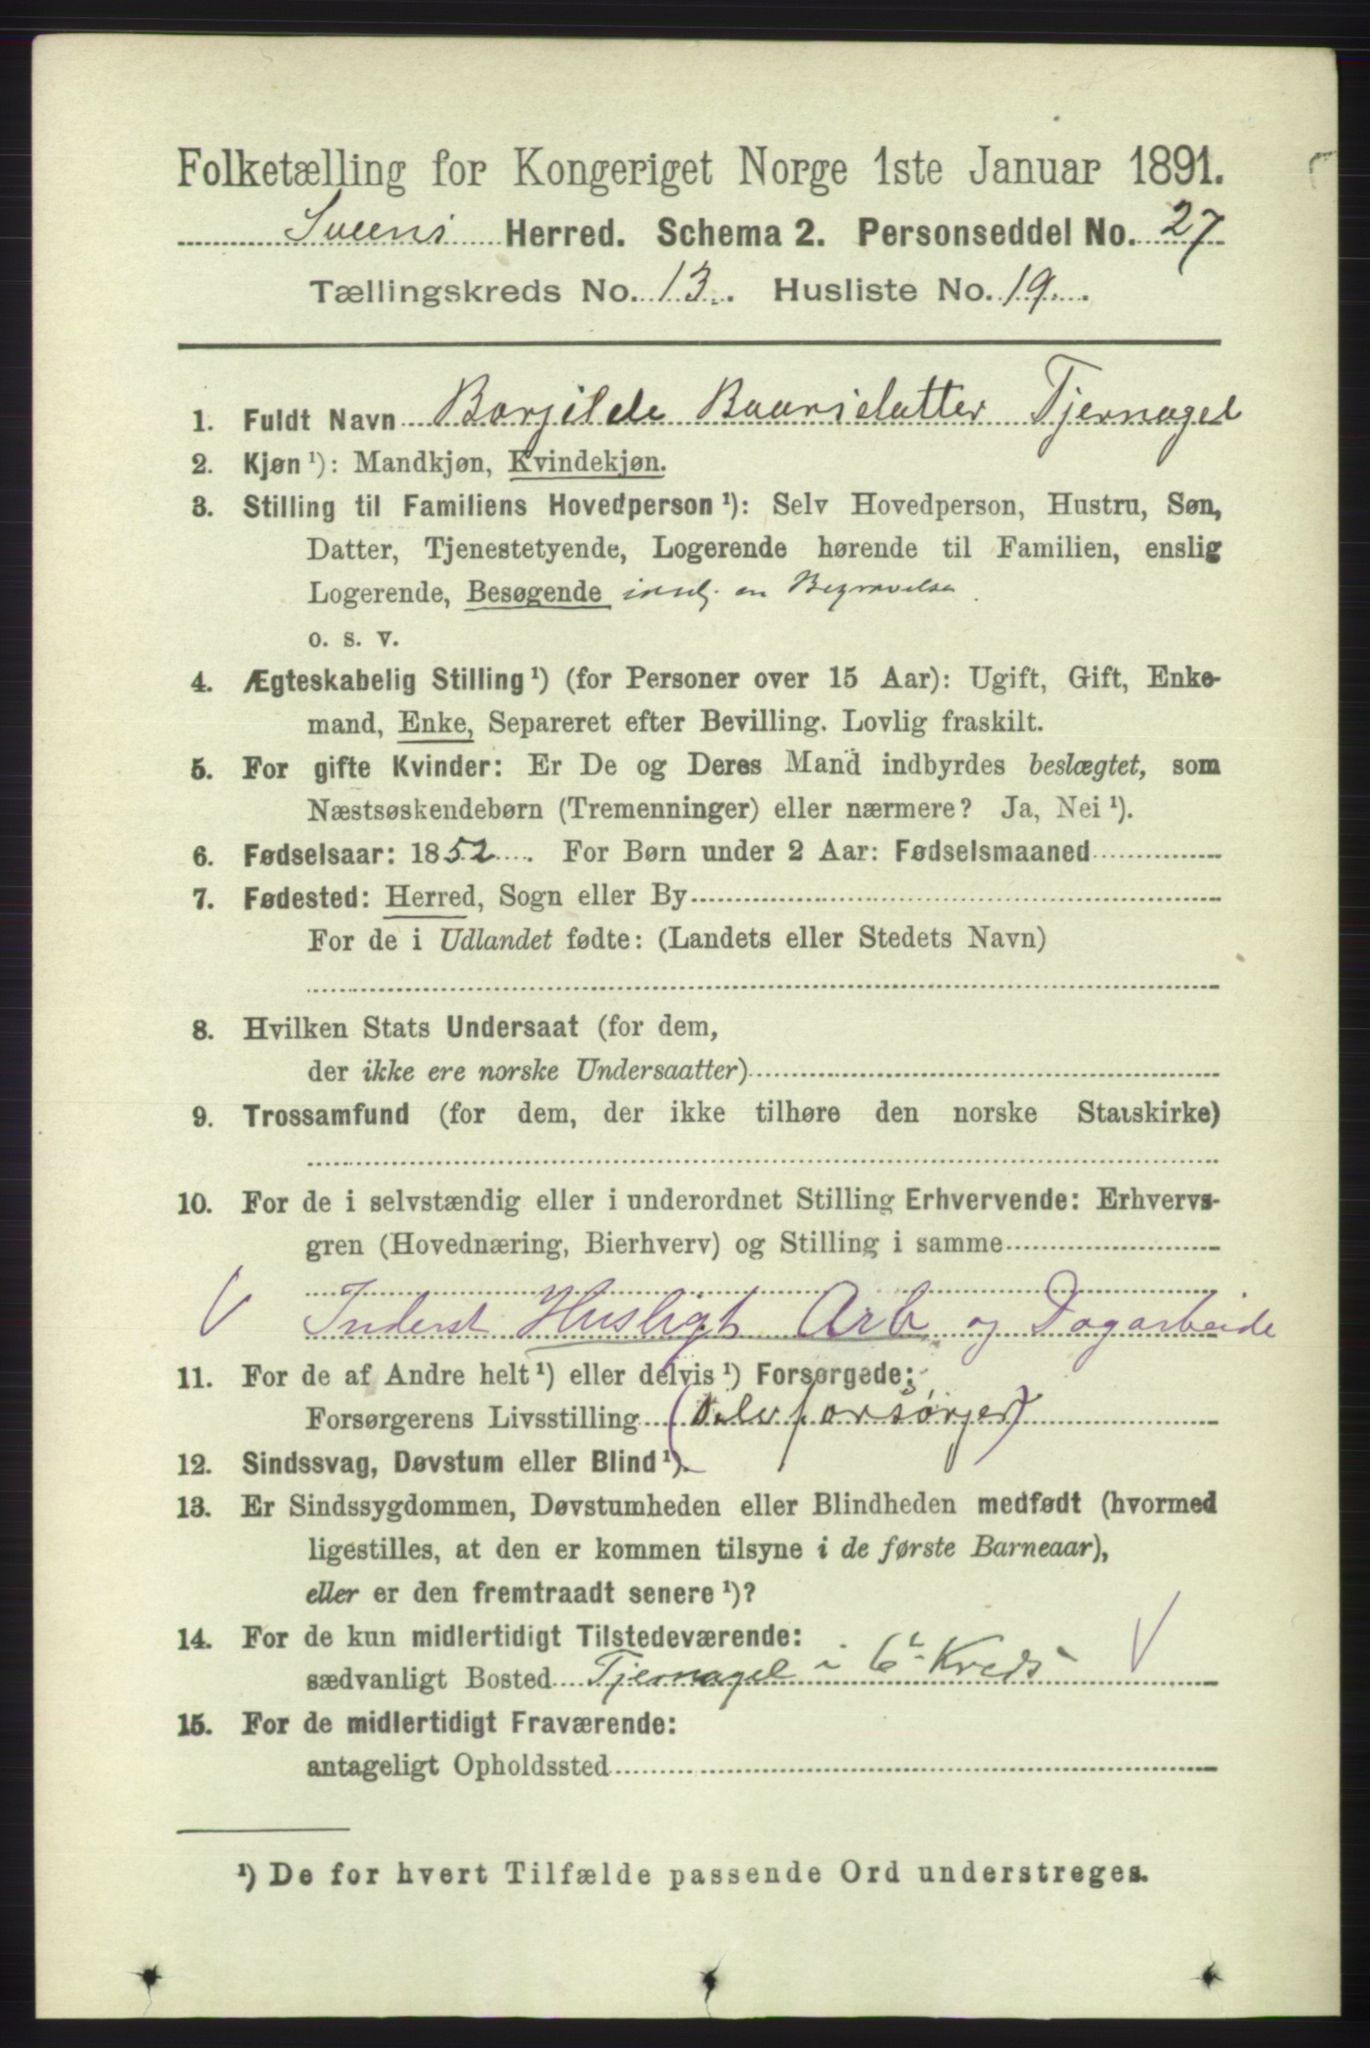 Folketælling for Kongeriget Norge 1ste Januar 1891.
Sveens Herred. Schema 2. Personseddel No. 27
Tællingskreds No. 13. Husliste No. 19.
1. Fuldt Navn Borgilde Baarsdatter Tjernagel
2. Kjøn ¹): Mandkjøn, Kvindekjøn.
3. Stilling til Familiens Hovedperson ¹): Selv Hovedperson, Hustru, Søn,
Datter, Tjenestetyende, Logerende hørende til Familien, enslig
Logerende, Besøgende en Begravelse
o. s. v.
4. Ægteskabelig Stilling ¹) (for Personer over 15 Aar): Ugift, Gift, Enke-
mand, Enke, Separeret efter Bevilling. Lovlig fraskilt.
5. For gifte Kvinder: Er De og Deres Mand indbyrdes beslægtet, som
Næstsøskendebørn (Tremenninger) eller nærmere? Ja, Nei ¹).
6. Fødselsaar: 1852. For Børn under 2 Aar: Fødselsmaaned
7. Fødested: Herred, Sogn eller By
For de i Udlandet fødte: (Landets eller Stedets Navn)
8. Hvilken Stats Undersaat (for dem,
der ikke ere norske Undersaatter)
9. Trossamfund (for dem, der ikke tilhøre den norske Statskirke)
10. For de i selvstændig eller i underordnet Stilling Erhvervende: Erhvervs-
gren (Hovednæring, Bierhverv) og Stilling i samme
V Inderst Husligt Arb og Dagarbeide
11. For de af Andre helt ¹) eller delvis ¹) Forsørgede:
Forsørgerens Livsstilling
12. Sindssvag, Døvstum eller Blind ¹).
13. Er Sindssygdommen, Døvstumheden eller Blindheden medfødt (hvormed
ligestilles, at den er kommen tilsyne i de første Barneaar),
eller er den fremtraadt senere ¹)?
14. For de kun midlertidigt Tilstedeværende:
sædvanligt Bosted Tjernagel i 6te Kreds V
15. For de midlertidigt Fraværende:
antageligt Opholdssted
¹) De for hvert Tilfælde passende Ord understreges.